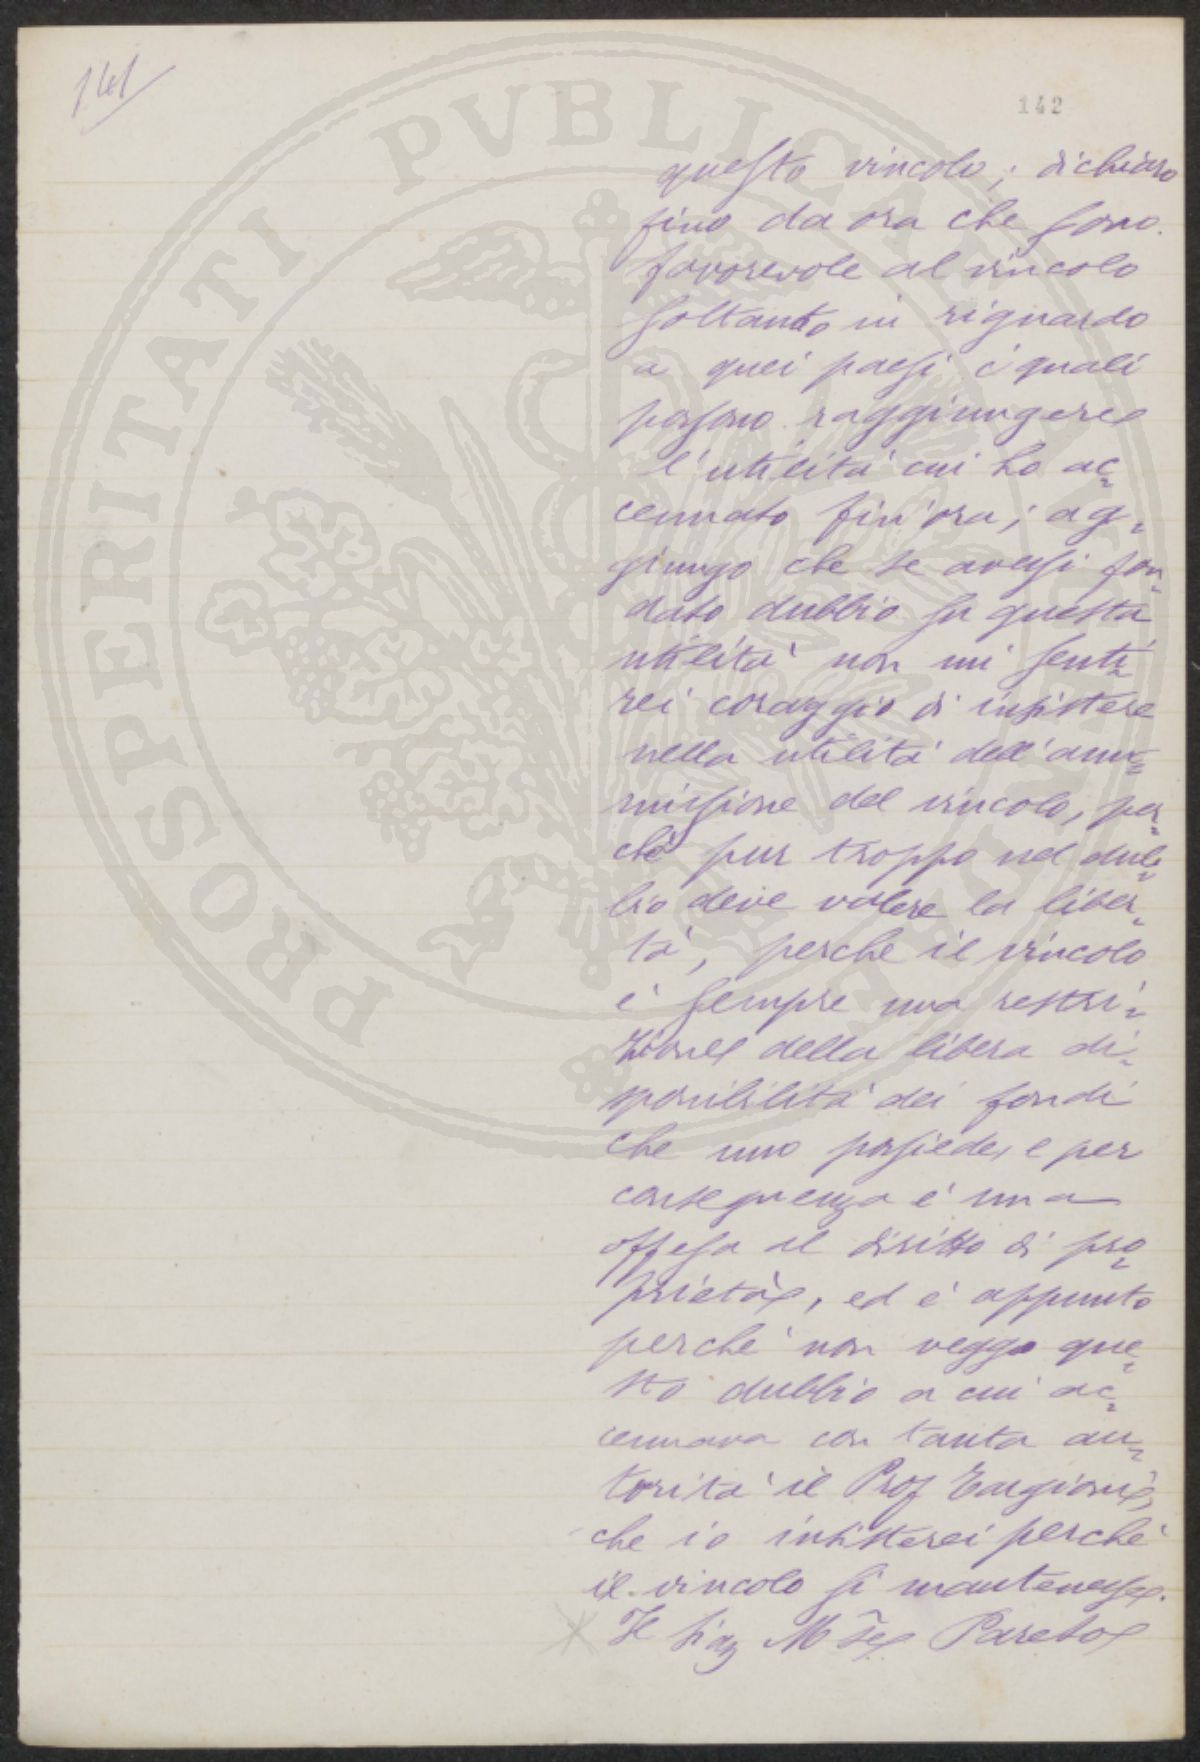 141
142
questo vincolo; dichiaro
fino da ora che sono
favorevole al vincolo
soltanto in riguardo
a quei paesi i quali
possono raggiungere
l'utilità cui ho ac=
cennato fin'ora; ag=
giungo che se avessi fon=
dato dubbio su questa
utilità non mi senti=
rei coraggio di insistere
nella utilità dell'am=
missione del vincolo, per=
chè pur troppo nel dub=
bio deve valere la liber=
tà, perche il vincolo
è sempre una restri=
zione della libera di=
sponibilità dei fondi
che uno possiede, e per
conseguenza è una
offesa il diritto di pro=
prietà, ed è appunto
perchè non veggo que=
sto dubbio a cui ac=
cennava con tanta au=
torità il Prof Targioni,
che io insisterei perchè
il vincolo si mantenesse.
Il Sig M se Pareto
PROSPERITATI PVBLICAE